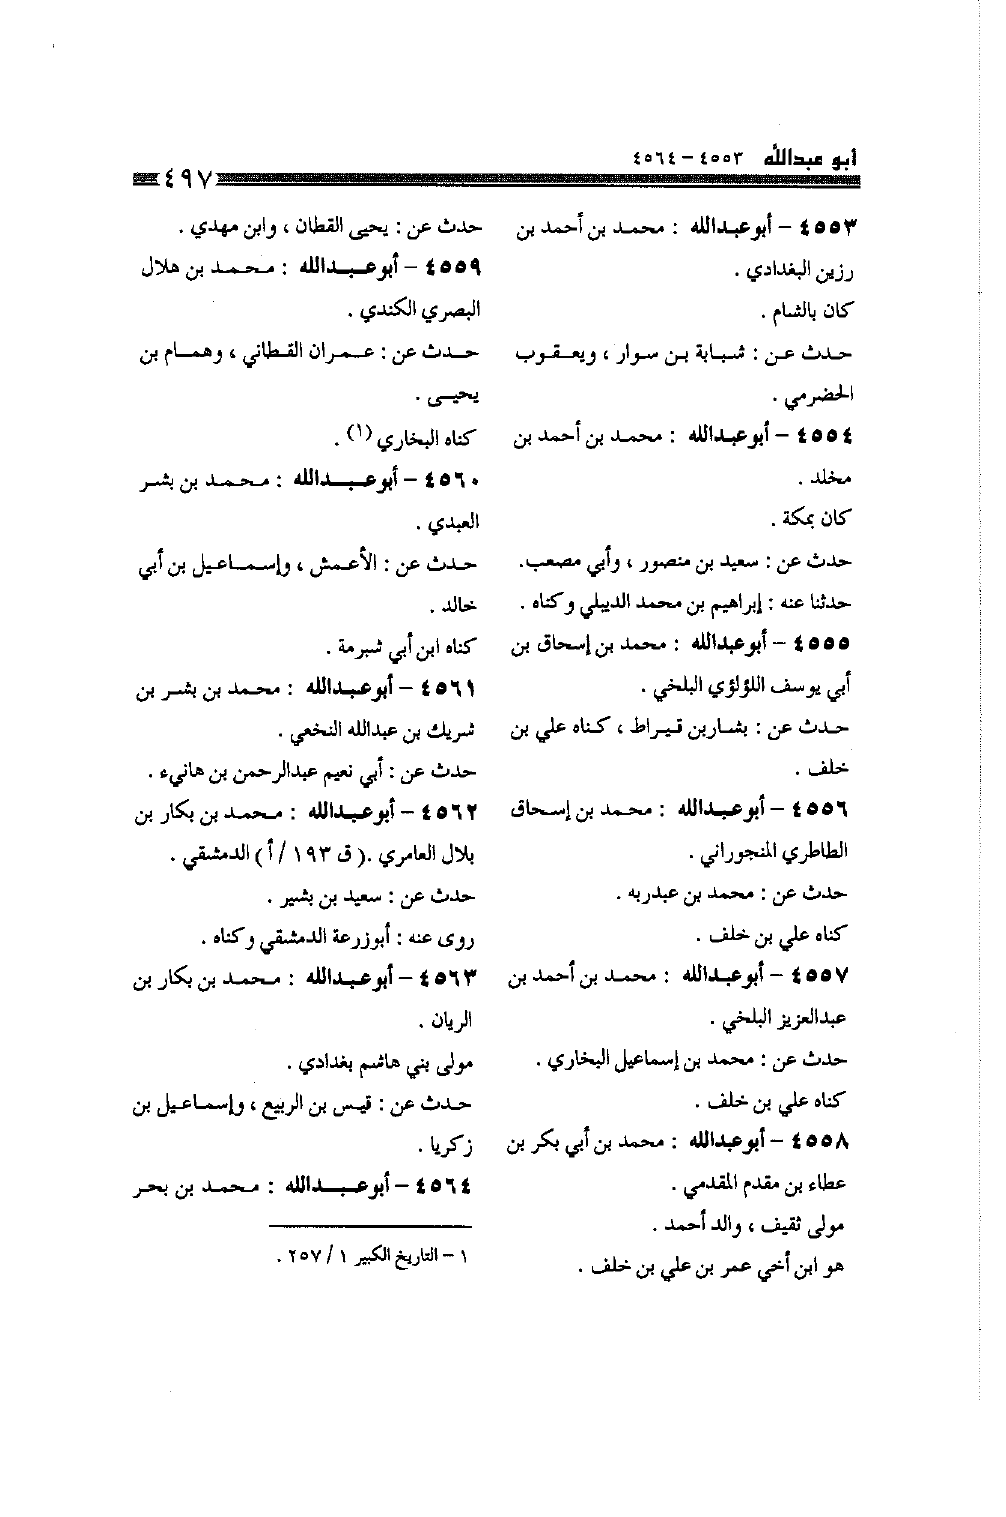 أبو عبدالله ٤٥٥٣ - ٤٥٦٤
٤٩٧
٤٥٥٣ - أبوعبدالله : محمد بن أحمد بن
رزين البغدادي .
كان بالشام .
حدث عن : شبابة بن سوار ، ويعقوب
الحضرمي .
٤٥٥٤ - أبوعبدالله : محمد بن أحمد بن
مخلد .
كان بمكة .
حدث عن : سعيد بن منصور ، وأبي مصعب.
حدثنا عنه : إبراهيم بن محمد الديبلي وكناه .
٤٥٥٥ - أبوعبدالله : محمد بن إسحاق بن
أبي يوسف اللؤلؤي البلخي .
حدث عن : بشاربن قيراط ، كناه علي بن
خلف .
٤٥٥٦ - أبوعبدالله : محمد بن إسحاق
الطاطري المنجوراني .
حدث عن : محمد بن عبدربه .
كناه علي بن خلف .
٤٥٥٧ - أبوعبدالله : محمد بن أحمد بن
عبدالعزيز البلخي .
حدث عن : محمد بن إسماعيل البخاري .
كناه علي بن خلف .
٤٥٥٨ - أبوعبدالله : محمد بن أبي بكر بن
عطاء بن مقدم المقدمي .
مولى ثقيف ، والد أحمد .
هو ابن أخي عمر بن علي بن خلف .
حدث عن : يحيى القطان ، وابن مهدي .
٤٥٥٩ - أبوعبدالله : محمد بن هلال
البصري الكندي .
حدث عن : عمران القطاني ، وهمام بن
يحيى .
كناه البخاري (١) .
٤٥٦٠ - أبوعبدالله : محمد بن بشر
العبدي .
حدث عن : الأعمش ، وإسماعيل بن أبي
خالد .
كناه ابن أبي شبرمة .
٤٥٦١ - أبوعبدالله : محمد بن بشر بن
شريك بن عبدالله النخعي .
حدث عن : أبي نعيم عبدالرحمن بن هانيء .
٤٥٦٢ - أبوعبدالله : محمد بن بكار بن
بلال العامري .( ق ١٩٣ /أ) الدمشقي .
حدث عن : سعيد بن بشير .
روى عنه : أبوزرعة الدمشقي وكناه .
٤٥٦٣ - أبوعبدالله : محمد بن بكار بن
الريان .
مولى بني هاشم بغدادي .
حدث عن : قيس بن الربيع ، وإسماعيل بن
زكريا .
٤٥٦٤ - أبوعبدالله : محمد بن بحر
١ - التاريخ الكبير ١ /٢٥٧ .